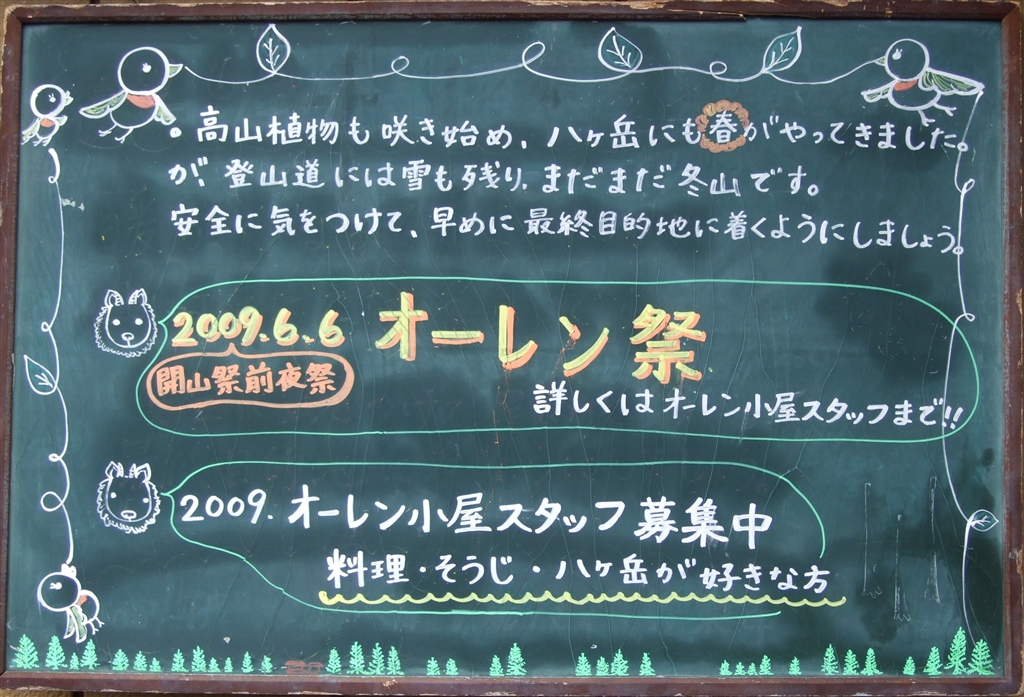 。高山植物も咲き始め、八ヶ岳にも春がやってきました。
が、登山道には雪も残り、まだまだ冬山です。
安全に気をつけて、早めに最終目的地に着くようにしましょう。
2009.6.6 オーレン祭
開山祭前夜祭
詳しくはオーレン小屋スタッフまで!!
2009.オーレン小屋スタッフ募集中
料理・そうじ・八ヶ岳が好きな方